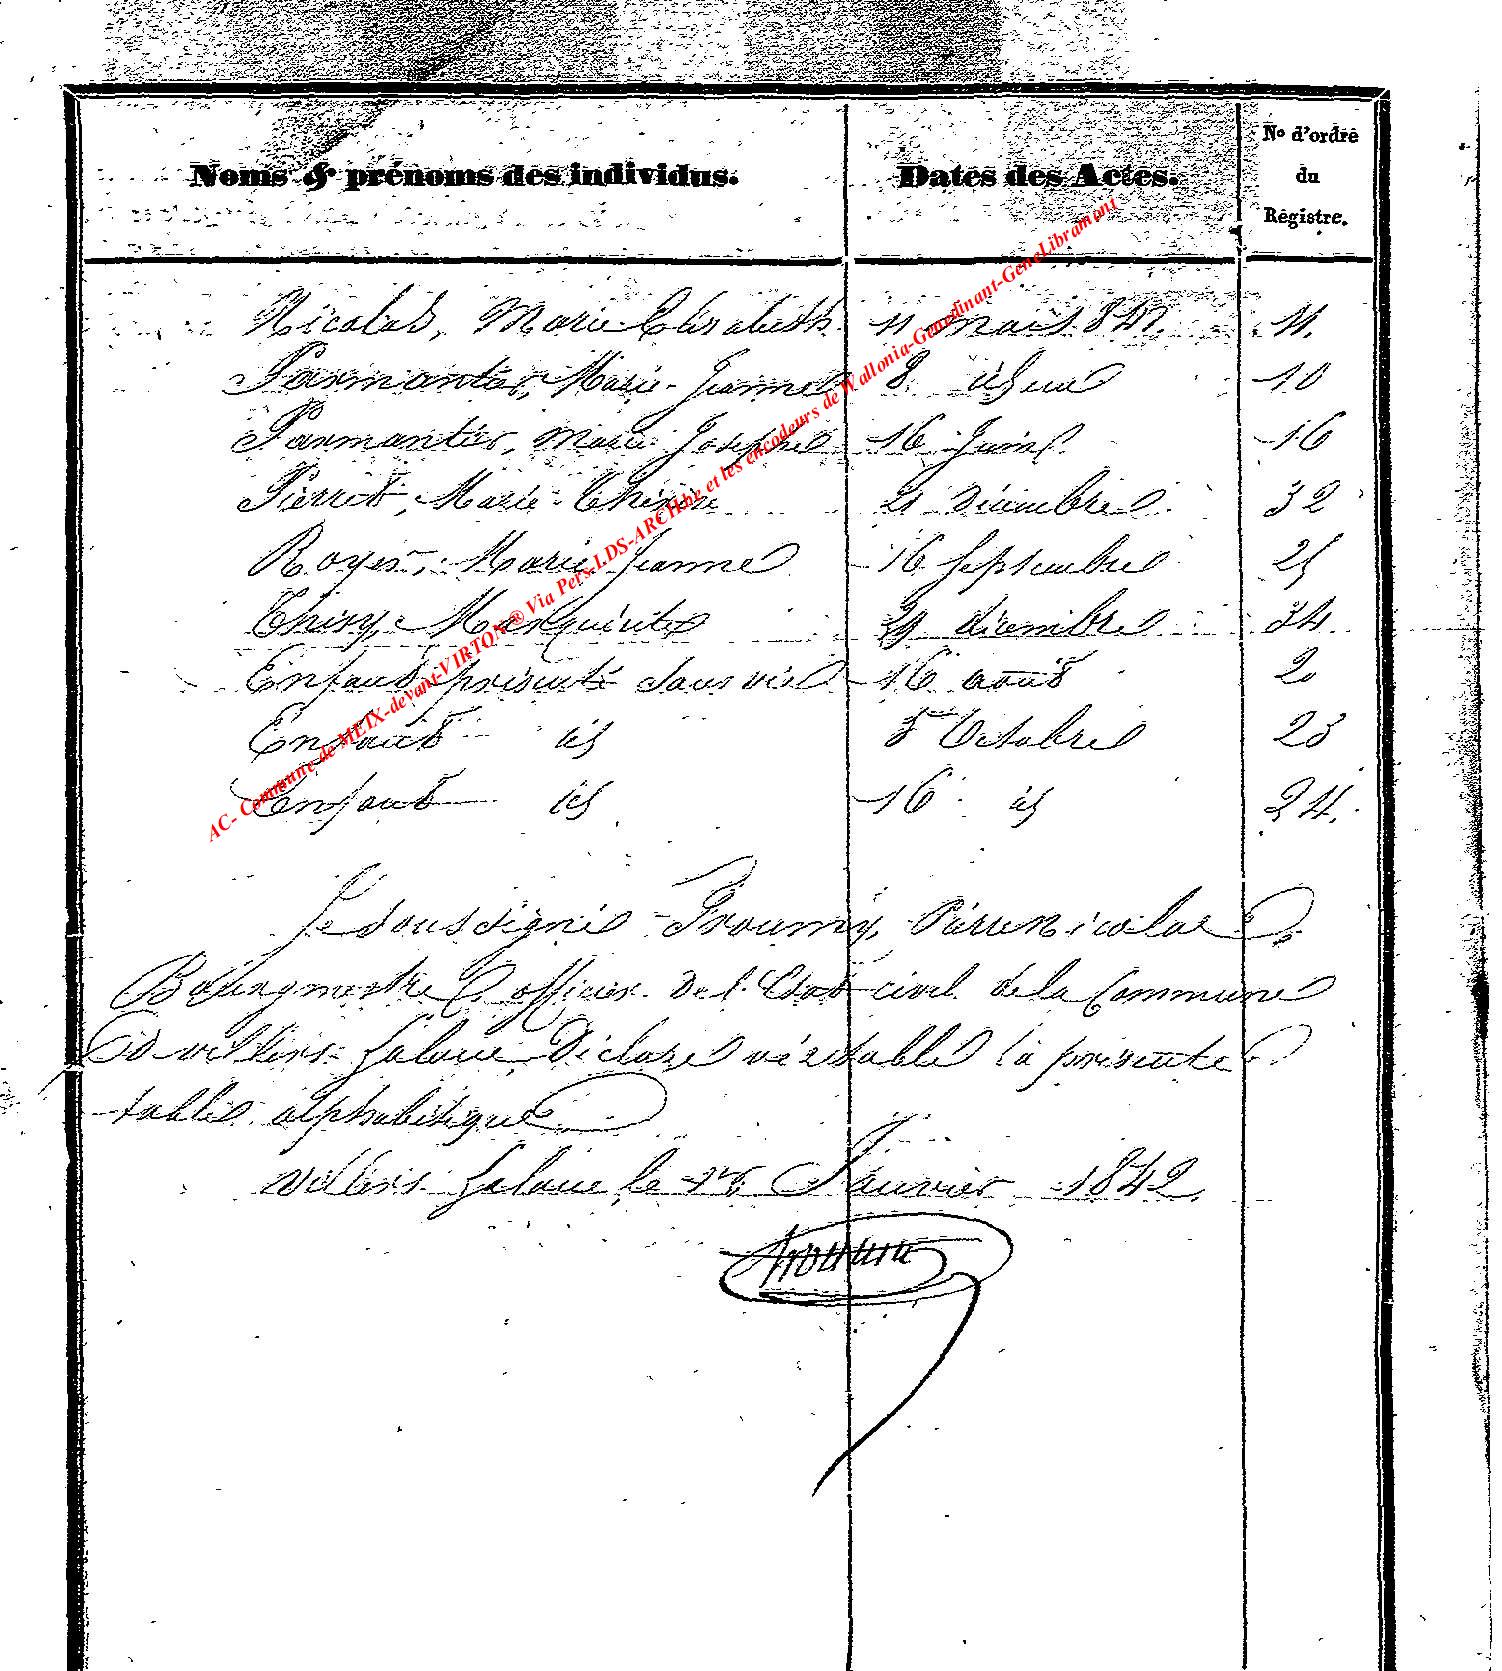 Noms & prénoms des individus. Dates des Actes. No d'ordre du Régistre.
Nicolas, Marie Elisabeth 11 mars 1841. 11.
Parmantier, Marie-Jeanne 8 10
Parmantier, Marie Josephe 16 Juin 16
Pierrot, Marie-Thérèse 21 décembre 32
Royer, Marie Jeanne 16 Septembre 21
Thiry, Marguérite 29 décembre 34
Enfant présenté sans vie 16 août 2
Enfant id 5 Octobre 23
Enfant id 16 id 24.
Je soussigné Proumy, Pierre Nicolas
Bourgmestre officier de l'Etat civil de la Commune
de villers-Laloue Déclare véritable la présente
table alphabétique
villers Laloue le 1er Janvier 1842.
AC- Commune de MEIX-devant-VIRTON® Via Pers-LDS-ARCHbe et les encodeurs de Wallonia-Genedinant-GeneLibramont